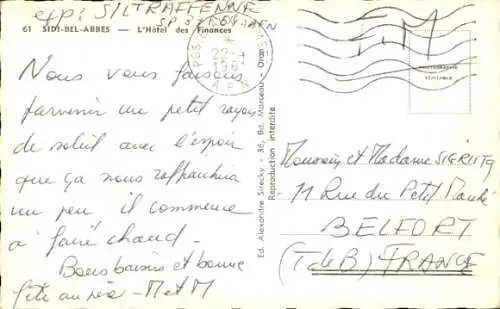 exp: SILTRAFFENNE
SP 87.664 AAFN
61 SIDI-BEL-ABBES — L'Hôtel des Finances
Nous vous faisons
parvenir un petit rayon
de soleil avec l'espoir
que ça nous raffraichira
un peu il commence
à faire chaud.
Bons baisers et bonne
fête au père - M et M
Ed. Alexandre Sirecky - 36, Bd. Marceau - Oran
Reproduction interdite
F.M
PHOTOGRAPHIE
VERITABLE
Monsieur et Madame SIGRIST
11 Rue du Petit Marché
BELFORT
(T de B) FRANCE